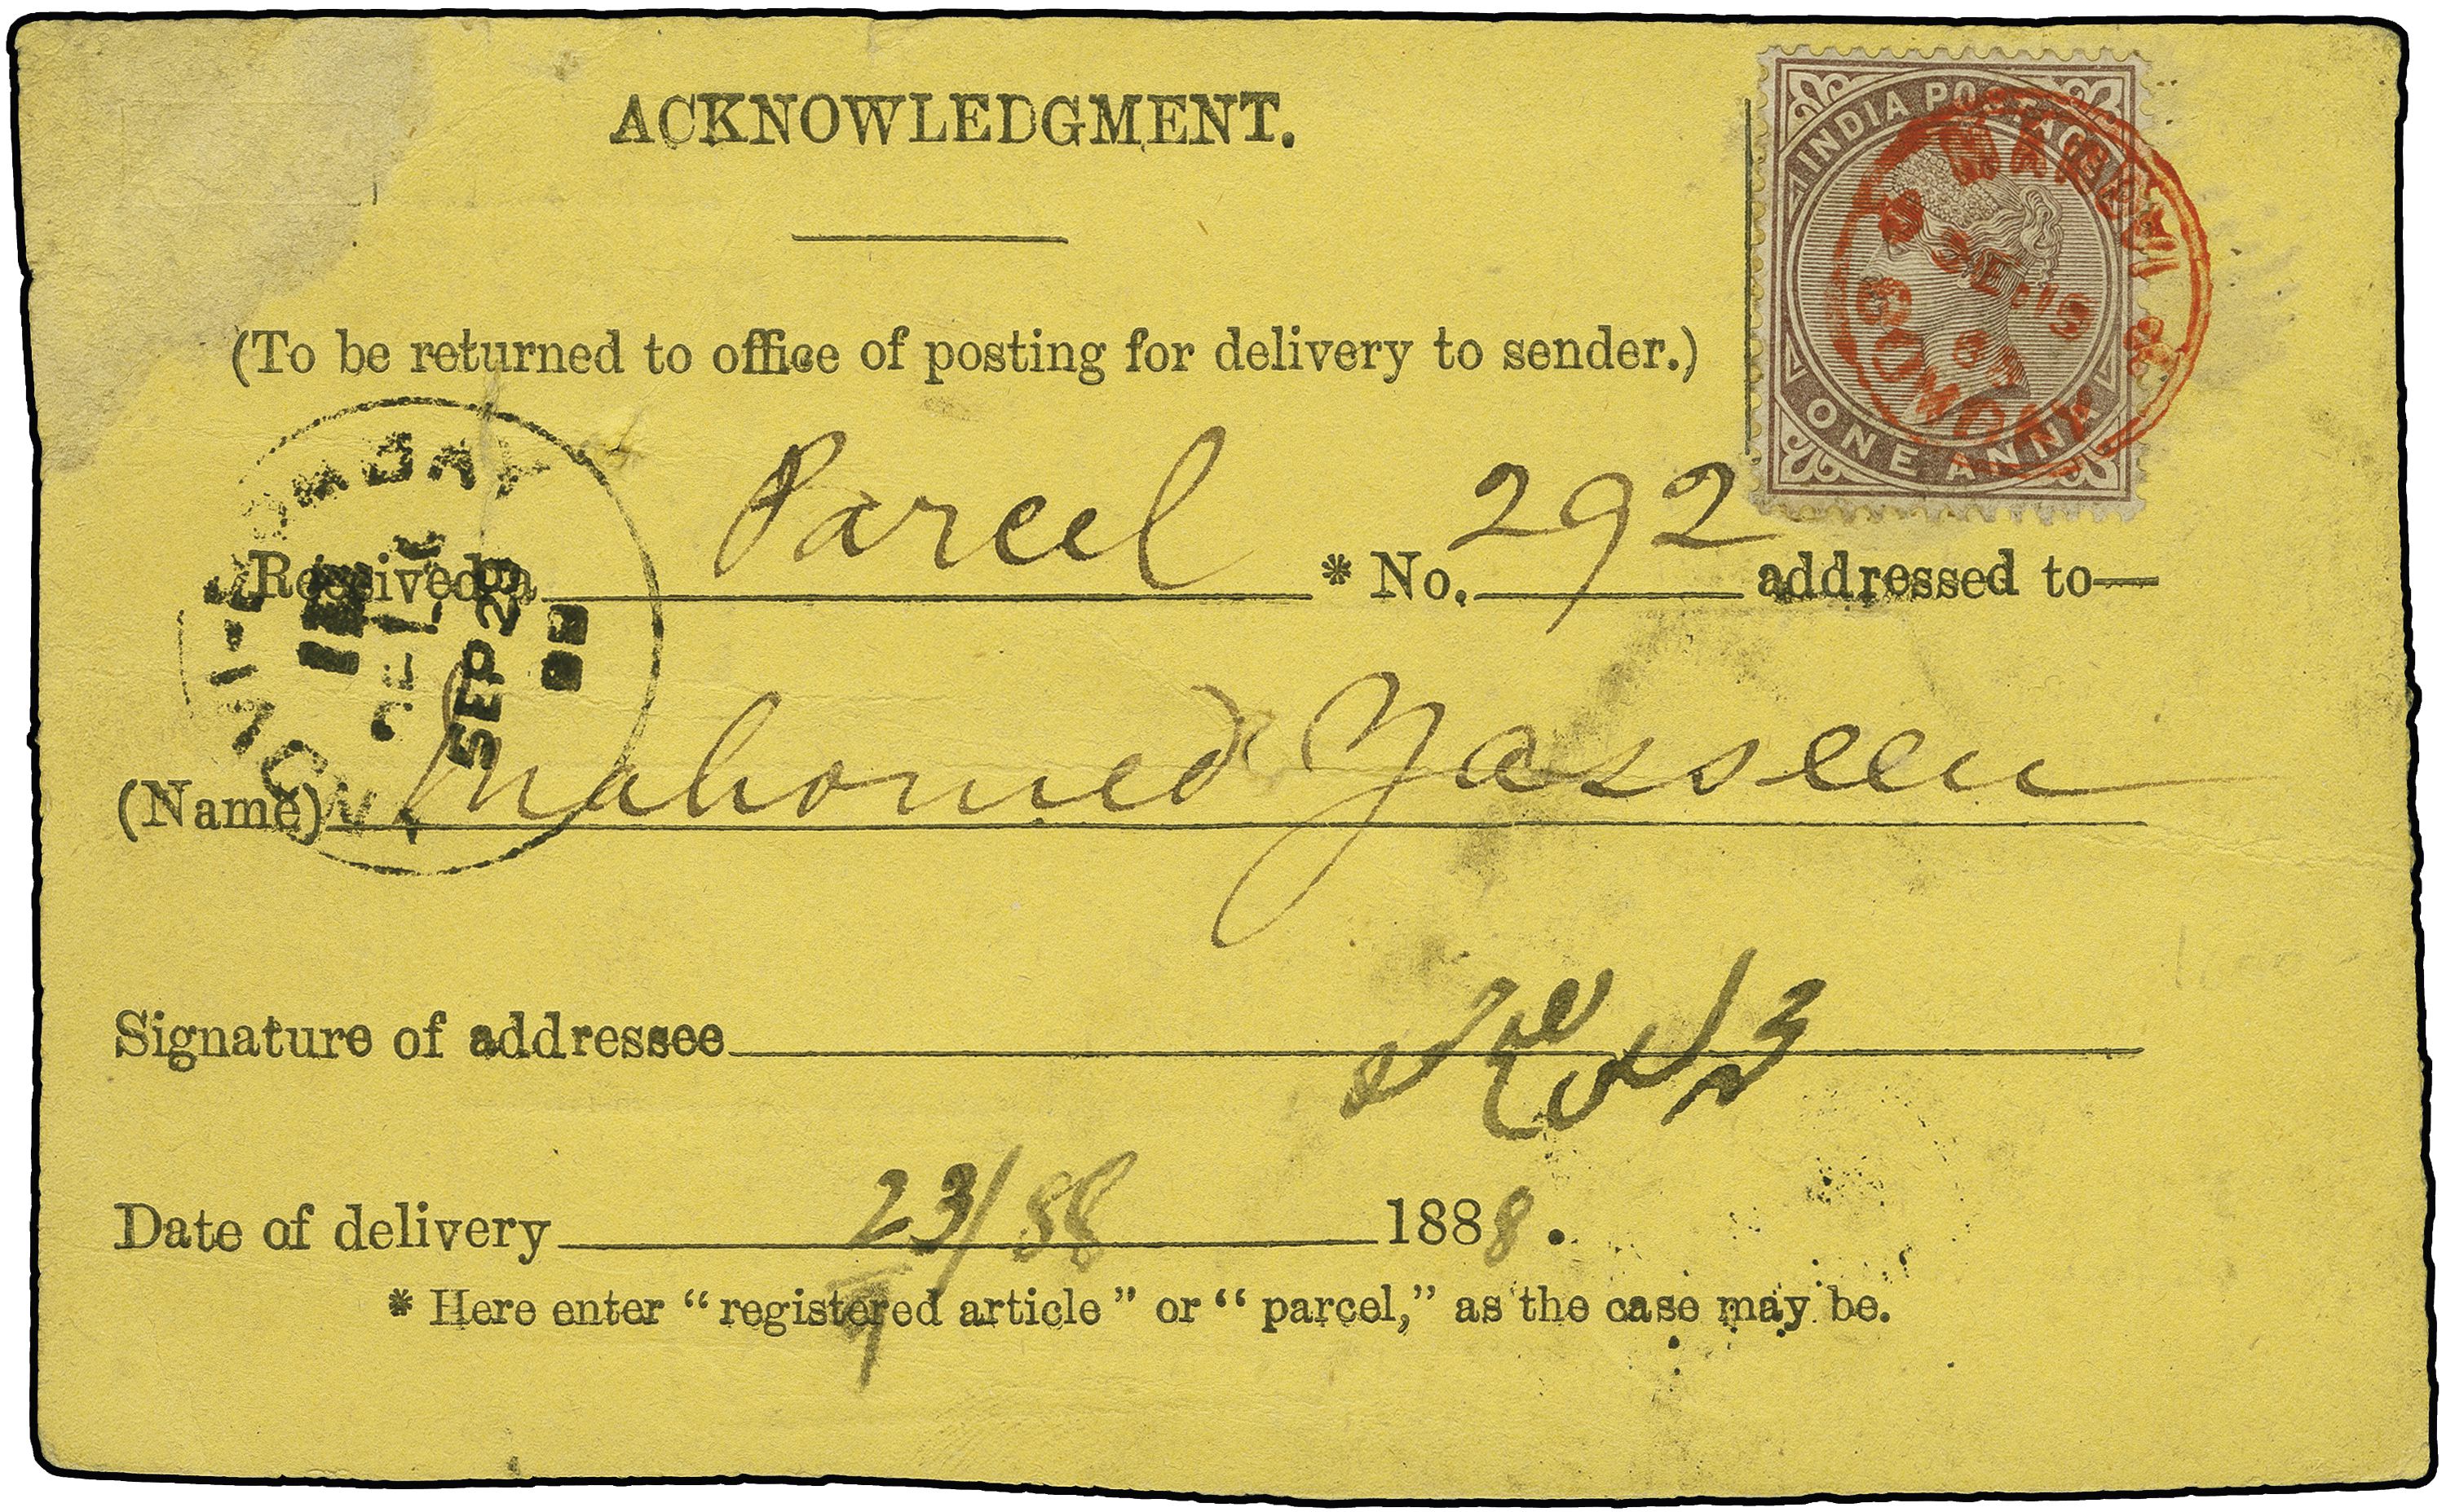 ACKNOWLEDGMENT.
INDIA POSTAGE
ONE ANNA
(To be returned to office of posting for delivery to sender.)
Received a Parcel * No. 292 addressed to—
SEP 23
(Name) Mahomed Yasseen
Signature of addressee
Date of delivery 23/9 88 1888.
* Here enter "registered article" or "parcel," as the case may be.